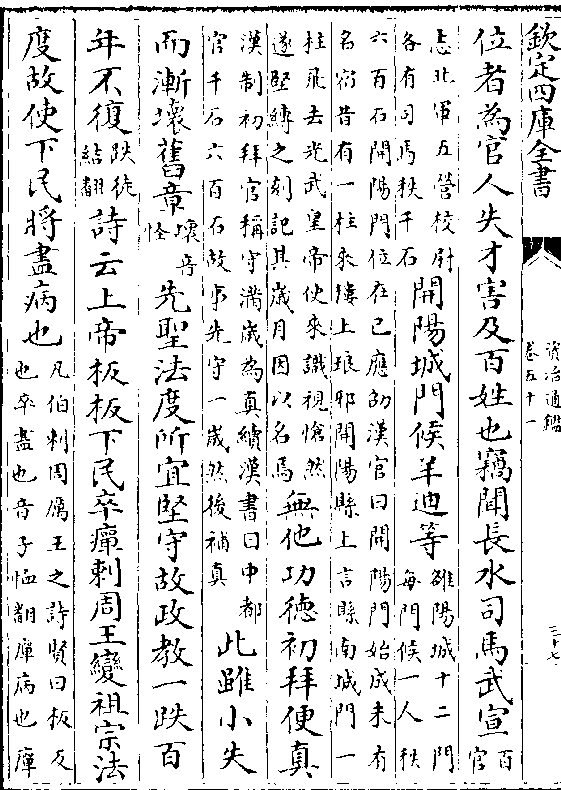 欽定四庫全書
資治通鑑
卷五十一
三十七
位者為官人失才害及百姓也竊聞長水司馬武宣百
官
志北軍五營校尉
各有司馬秩千石開陽城門候羊迪等雒陽城十二門
每門候一人秩
六百石開陽門位在巳應劭漢官曰開陽門始成未有
名宿昔有一柱來樓上琅邪開陽縣上言縣南城門一
柱飛去光武皇帝使來識視愴然
遂堅縳之刻記其歲月因以名焉無他功德初拜便真
漢制初拜官稱守滿歲為真續漢書曰中都
官千石六百石故事先守一歲然後補真此雖小失
而漸壞舊章壞音
怪先聖法度所宜堅守故政教一跌百
年不復跌徒
結翻詩云上帝板板下民卒癉刺周王變祖宗法
度故使下民將盡病也凡伯刺周厲王之詩賢曰板反
也卒盡也音子恤翻癉病也癉